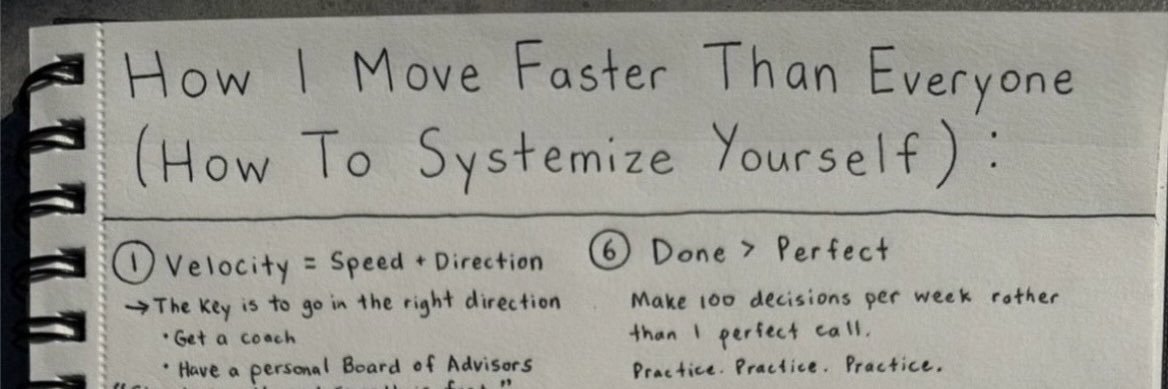 How I Move Faster Than Everyone
(How To Systemize Yourself):
① Velocity = Speed + Direction
→ The key is to go in the right direction
• Get a coach
• Have a personal Board of Advisors
⑥ Done > Perfect
Make 100 decisions per week rather
than 1 perfect call.
Practice. Practice. Practice.